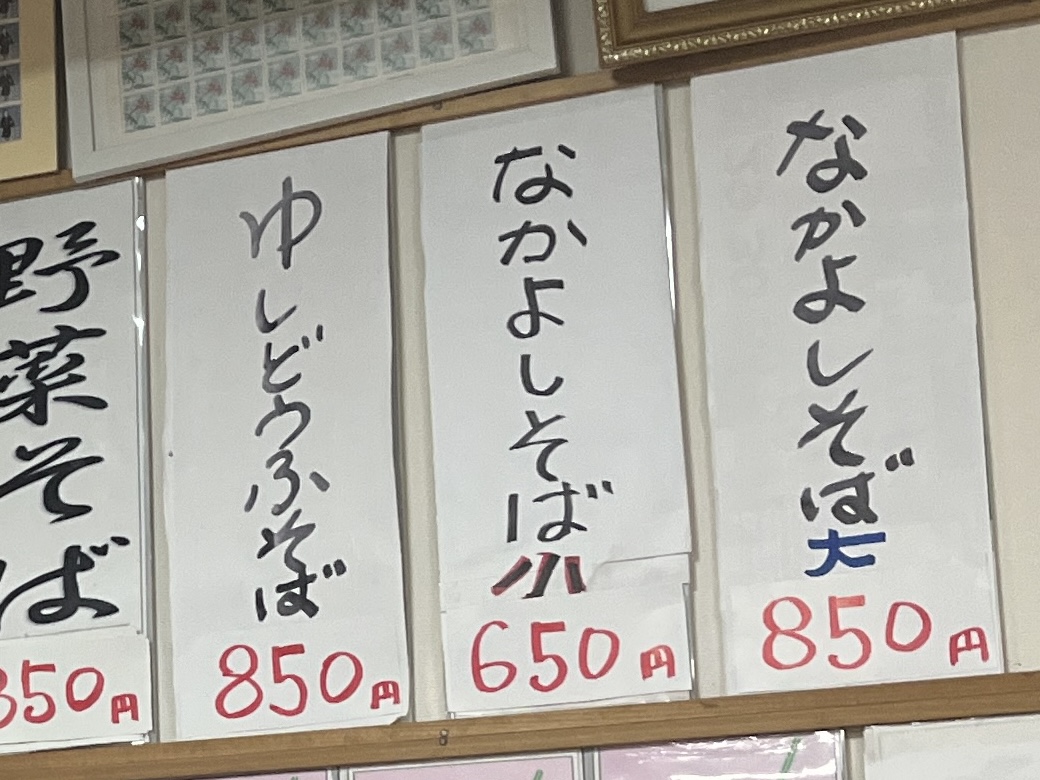 なかよしそば大
850円
なかよしそば小
650円
ゆしどうふそば
850円
野菜そば
850円